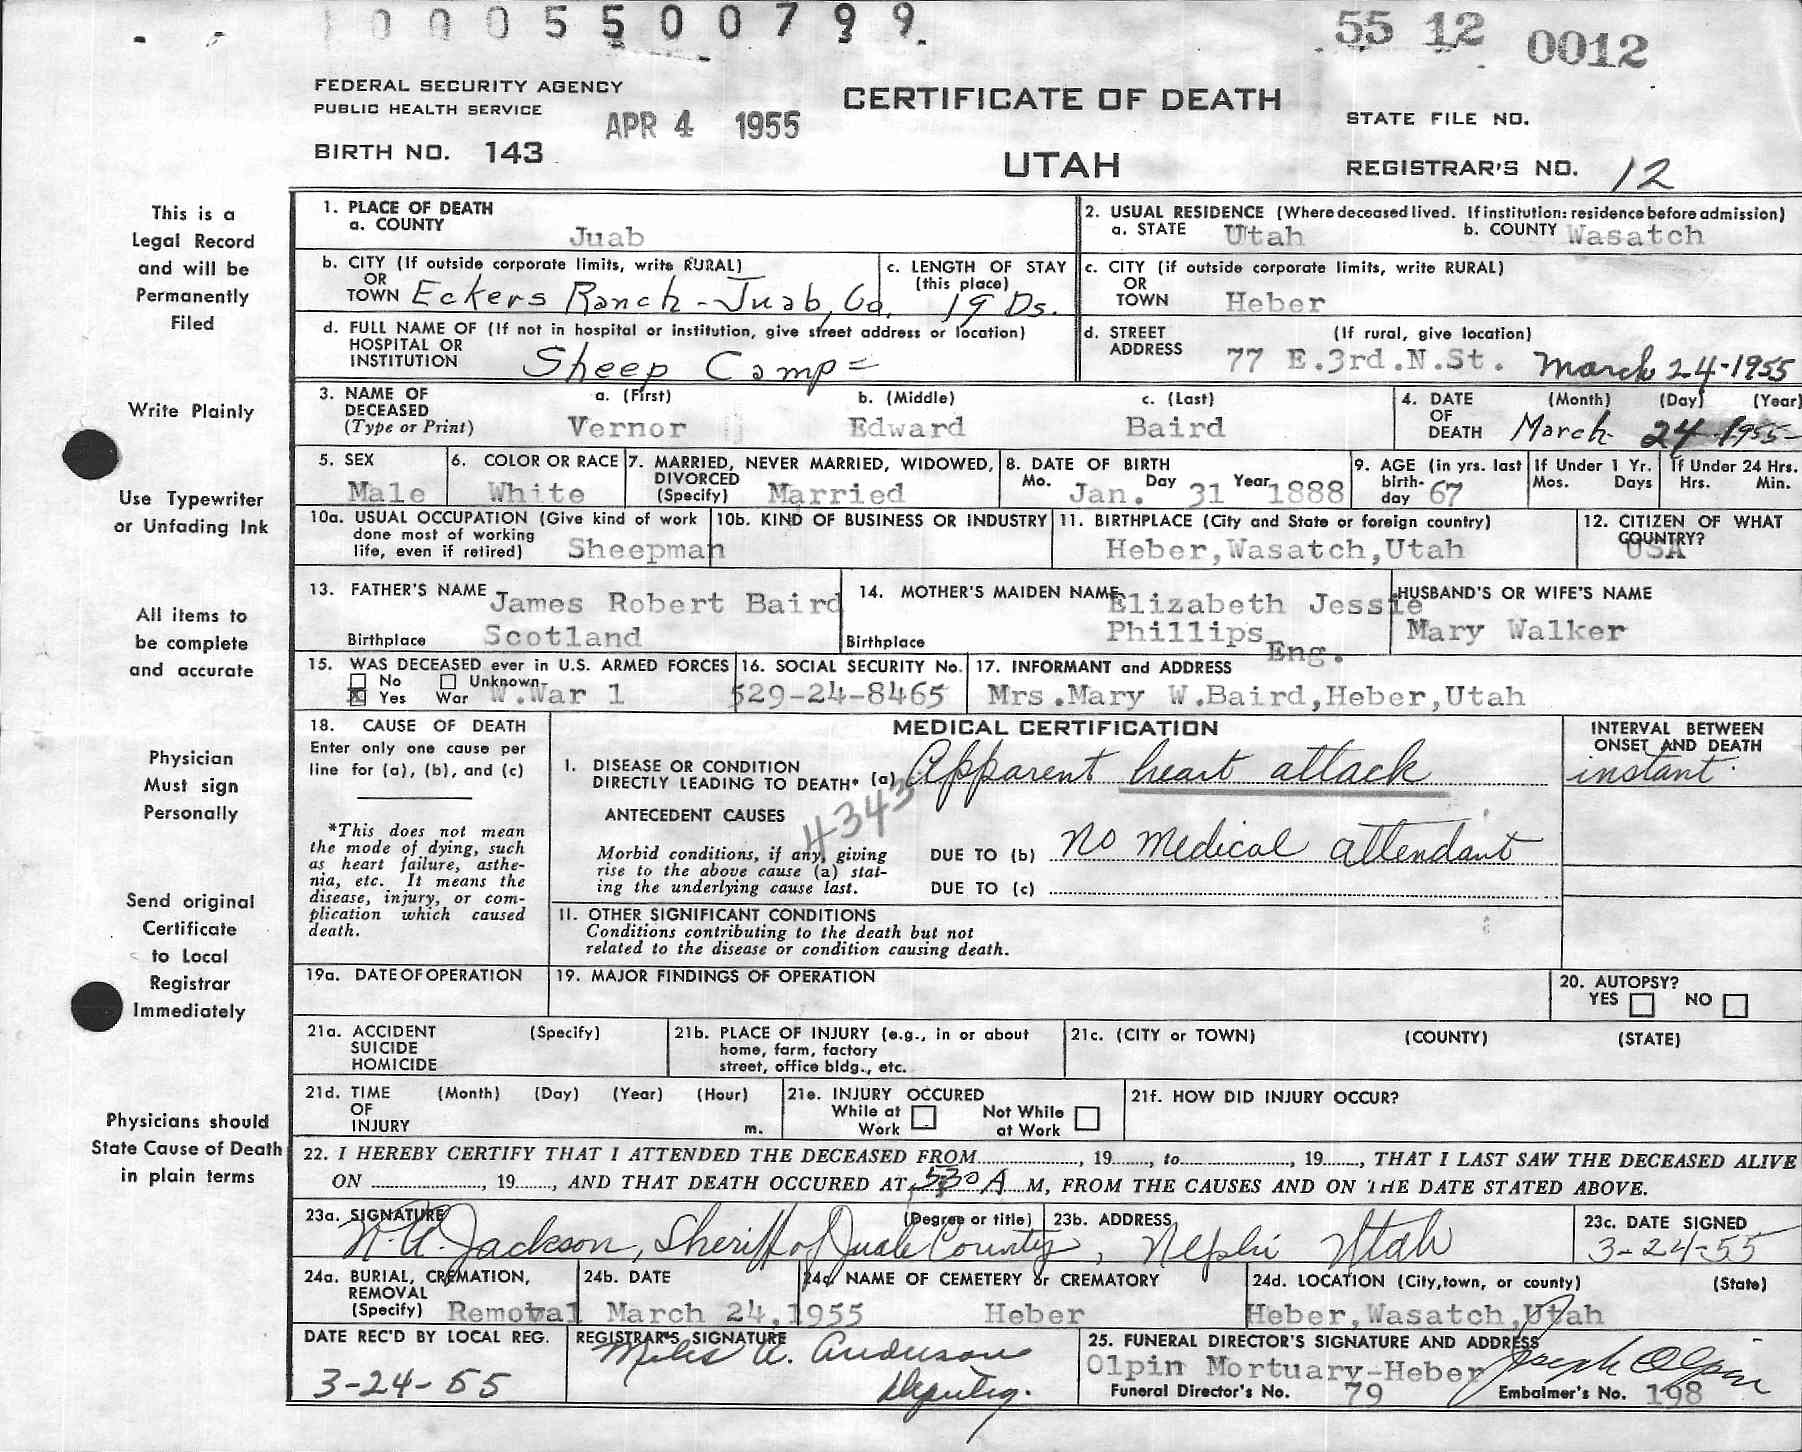 10005500799
55 12 0012
FEDERAL SECURITY AGENCY
PUBLIC HEALTH SERVICE
APR 4 1955
CERTIFICATE OF DEATH
STATE FILE NO.
BIRTH NO. 143
UTAH
REGISTRAR'S NO. 12
This is a
Legal Record
and will be
Permanently
Filed
Write Plainly
Use Typewriter
or Unfading Ink
All items to
be complete
and accurate
Physician
Must sign
Personally
Send original
Certificate
to Local
Registrar
Immediately
Physicians should
State Cause of Death
in plain terms
1. PLACE OF DEATH
a. COUNTY Juab
2. USUAL RESIDENCE (Where deceased lived. If institution: residence before admission)
a. STATE Utah b. COUNTY Wasatch
b. CITY (If outside corporate limits, write RURAL)
OR
TOWN Eckers Ranch - Juab, Co.
c. LENGTH OF STAY
(this place)
19 Ds.
c. CITY (if outside corporate limits, write RURAL)
OR
TOWN Heber
d. FULL NAME OF (If not in hospital or institution, give street address or location)
HOSPITAL OR
INSTITUTION Sheep Camp =
d. STREET (If rural, give location)
ADDRESS 77 E.3rd.N.St. March 24-1955
3. NAME OF
DECEASED
(Type or Print)
a. (First) b. (Middle) c. (Last)
Vernor Edward Baird
4. DATE (Month) (Day) (Year)
OF
DEATH March 24 1955-
5. SEX
Male
6. COLOR OR RACE
White
7. MARRIED, NEVER MARRIED, WIDOWED,
DIVORCED
(Specify) Married
8. DATE OF BIRTH
Mo. Jan. Day 31 Year 1888
9. AGE (in yrs. last
birth-
day 67
If Under 1 Yr.
Mos. Days
If Under 24 Hrs.
Hrs. Min.
10a. USUAL OCCUPATION (Give kind of work
done most of working
life, even if retired) Sheepman
10b. KIND OF BUSINESS OR INDUSTRY
11. BIRTHPLACE (City and State or foreign country)
Heber,Wasatch,Utah
12. CITIZEN OF WHAT
COUNTRY?
USA
13. FATHER'S NAME James Robert Baird
Birthplace Scotland
14. MOTHER'S MAIDEN NAME Elizabeth Jessie
Phillips
Birthplace Eng.
HUSBAND'S OR WIFE'S NAME
Mary Walker
15. WAS DECEASED ever in U.S. ARMED FORCES
No Unknown
x Yes War W.War 1
16. SOCIAL SECURITY No.
529-24-8465
17. INFORMANT and ADDRESS
Mrs.Mary W.Baird,Heber,Utah
18. CAUSE OF DEATH
Enter only one cause per
line for (a), (b), and (c)
*This does not mean
the mode of dying, such
as heart failure, asthe-
nia, etc. It means the
disease, injury, or com-
plication which caused
death.
MEDICAL CERTIFICATION
INTERVAL BETWEEN
ONSET AND DEATH
instant
I. DISEASE OR CONDITION
DIRECTLY LEADING TO DEATH* (a) Apparent heart attack
4343
ANTECEDENT CAUSES
Morbid conditions, if any, giving
rise to the above cause (a) stat-
ing the underlying cause last.
DUE TO (b) No medical attendant
DUE TO (c)
II. OTHER SIGNIFICANT CONDITIONS
Conditions contributing to the death but not
related to the disease or condition causing death.
19a. DATE OF OPERATION
19. MAJOR FINDINGS OF OPERATION
20. AUTOPSY?
YES NO
21a. ACCIDENT (Specify)
SUICIDE
HOMICIDE
21b. PLACE OF INJURY (e.g., in or about
home, farm, factory
street, office bldg., etc.
21c. (CITY or TOWN) (COUNTY) (STATE)
21d. TIME (Month) (Day) (Year) (Hour)
OF
INJURY m.
21e. INJURY OCCURED
While at Work Not While at Work
21f. HOW DID INJURY OCCUR?
22. I HEREBY CERTIFY THAT I ATTENDED THE DECEASED FROM ........, 19...., to ........, 19...., THAT I LAST SAW THE DECEASED ALIVE
ON ........, 19...., AND THAT DEATH OCCURED AT 530 A M, FROM THE CAUSES AND ON THE DATE STATED ABOVE.
23a. SIGNATURE (Degree or title)
Jackson, Sheriff of Juab County,
23b. ADDRESS
Nephi Utah
23c. DATE SIGNED
3-24-55
24a. BURIAL, CREMATION,
REMOVAL
(Specify) Removal
24b. DATE
March 24,1955
24c. NAME OF CEMETERY or CREMATORY
Heber
24d. LOCATION (City,town, or county) (State)
Heber,Wasatch,Utah
DATE REC'D BY LOCAL REG.
3-24-55
REGISTRAR'S SIGNATURE
Miles A. Anderson
Deputy.
25. FUNERAL DIRECTOR'S SIGNATURE AND ADDRESS
Olpin Mortuary-Heber Joseph Olpin
Funeral Director's No. 79 Embalmer's No. 198